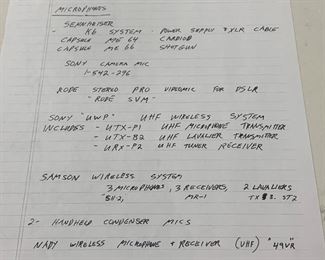 MICROPHONES
SENNHEISER
- K6 SYSTEM - POWER SUPPLY & XLR CABLE
CAPSULE ME 64 CARDIOD
CAPSULE ME 66 SHOTGUN
SONY CAMERA MIC
1-542-296
RODE STEREO PRO VIDEOMIC FOR DSLR
"RODE SVM"
SONY "UWP" UHF WIRELESS SYSTEM
INCLUDES - UTX-P1 UHF MICROPHONE TRANSMITTER
- UTX-B2 UHF LAVALIER TRANSMITTER
- URX-P2 UHF TUNER RECEIVER
SAMSON WIRELESS SYSTEM
3 MICROPHONES, 3 RECEIVERS, 2 LAVALIERS
MR-1 ST2
2- HANDHELD CONDENSER MICS
NADY WIRELESS MICROPHONE & RECEIVER (UHF) "49VR"